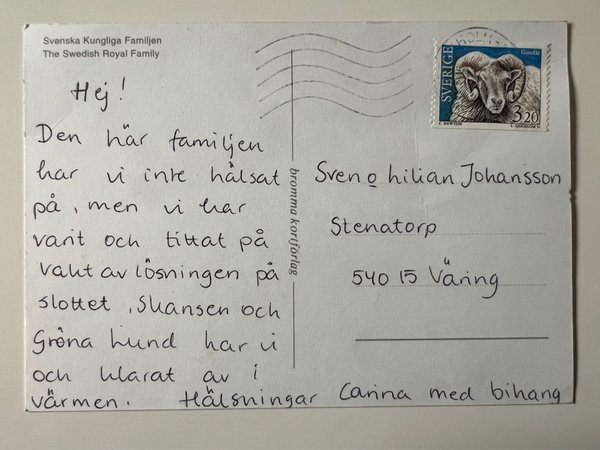 Svenska Kungliga Familjen
The Swedish Royal Family
Hej!
Den här familjen
har vi inte hälsat
på, men vi har
varit och tittat på
vaktavlösningen på
slottet, Skansen och
Gröna Lund har vi
och klarat av i
värmen. Hälsningar Carina med bihang
bromma kortförlag
SVERIGE
Gutefår
3,20
Sven o Lilian Johansson
Stenatorp
540 15 Väring